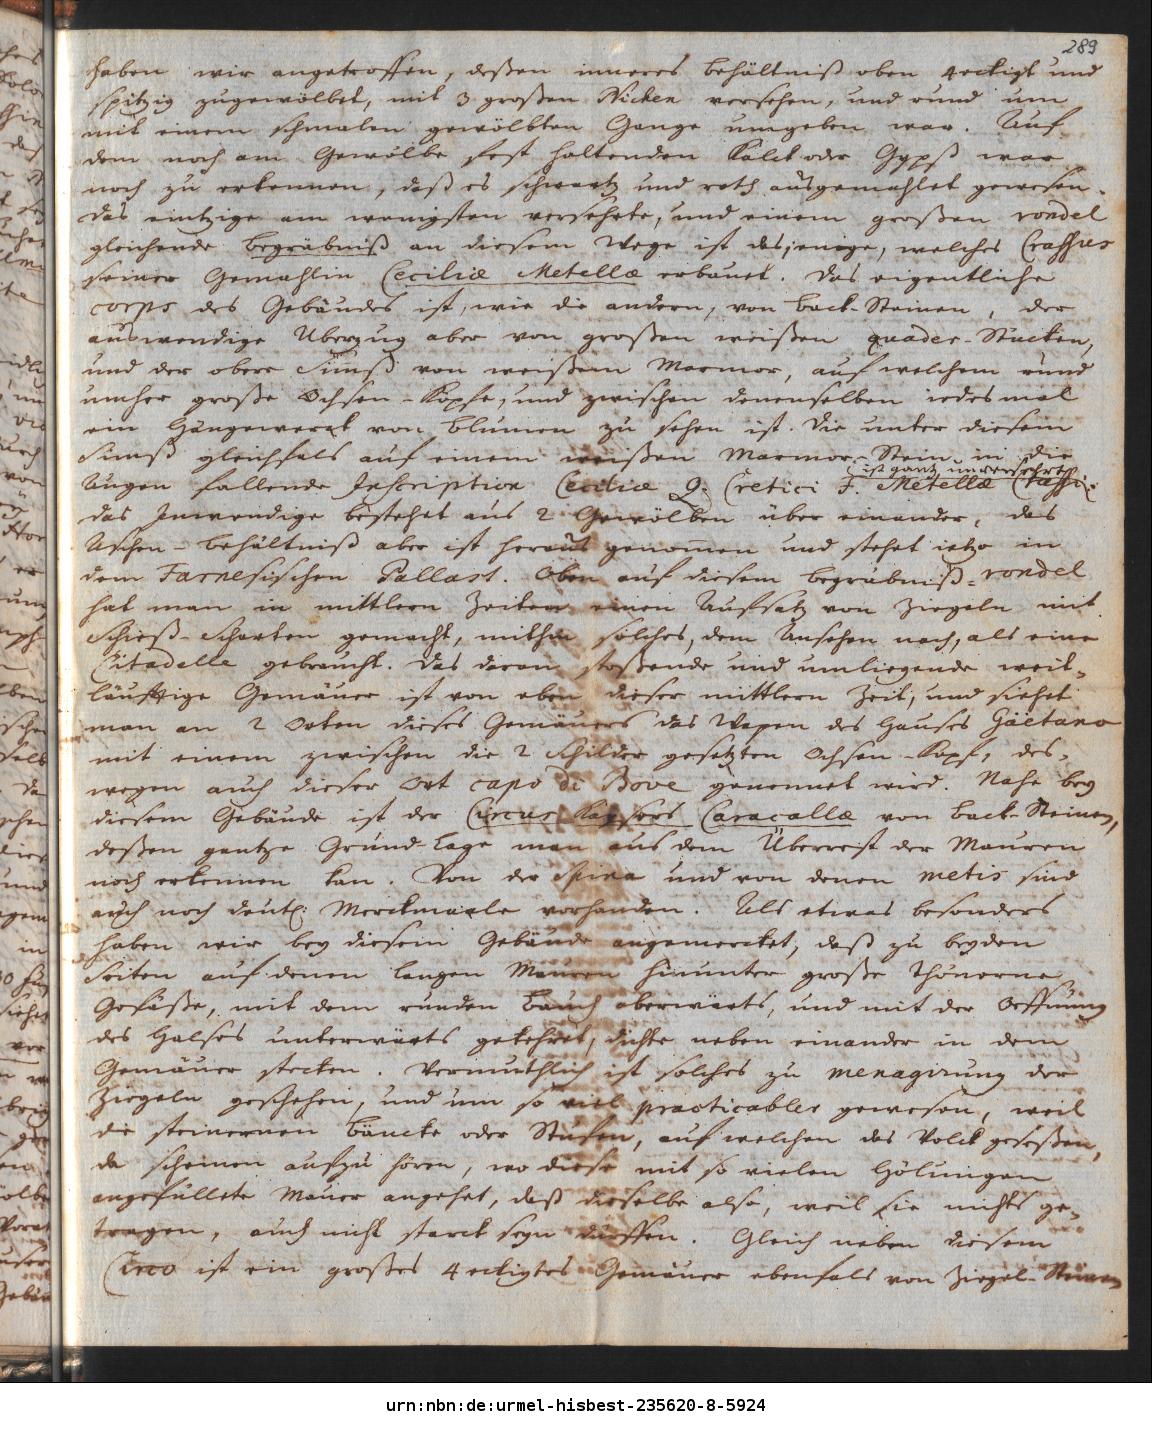 289
haben wir angetroffen, deßen inneres behältniß oben 4eckigt und
spitzig zugewölbet, mit 3 großen Nichen versehen, und rund um
mit einem schmalen gewölbten Gange umgeben war. Auf
dem noch am Gewölbe fest haltenden Kalck oder Gypß war
noch zu erkennen, daß es schwartz und roth ausgemahlet gewesen.
Das eintzige am wenigsten versehrte, und einem großen rondel
gleichende Begräbniß an diesem Wege ist dasjenige, welches Crassus
seiner Gemahlin Ceciliæ Metellæ erbauet. Das eigentliche
corps des Gebäudes ist, wie die andern, von back-Steinen, der
auswendige Uberzug aber von großen weißen quader-Stucken,
und der obere Simß von weißem Marmor, auf welchem rund
umher große Ochsen-Köpfe, und zwischen denenselben iedesmal
ein Hangewerck von blumen zu sehen ist. Die unter diesem
Simß gleichfals auf einem weißen Marmor-Stein in die
ist gantz unversehret.
Augen fallende Inscription Ceciliæ Q. Cretici F. Metellæ Crassi
Das Inwendige bestehet aus 2 Gewölben über einander, das
Aschen-behältniß aber ist heraus genommen und stehet ietzo in
dem Farnesischen Pallast. Oben auf diesem begräbniß-rondel
hat man in mittlern Zeiten einen Aufsatz von Ziegeln mit
Schieß-Scharten gemacht, mithin solches, dem Ansehen nach, als eine
Citadelle gebraucht. Das daran stoßende und umliegende weit-
läufftige Gemäuer ist von eben dieser mittlern Zeit, und siehet
man an 2 Orten dieses Gemäuers das Wapen des Hauses Gaetano
mit einem zwischen die 2 Schilder gesetzten Ochsen-Kopf, des-
wegen auch dieser Ort capo di Bove genennet wird. Nahe bey
diesem Gebäude ist der Circus Kaysers Caracallæ von back-Steinen,
deßen gantze Grund-Lage man aus dem Überrest der Mauren
noch erkennen kan. Von der Spina und von denen metis sind
auch noch deutl: Merckmaale vorhanden. Als etwas besonders
haben wir bey diesem Gebäude angemercket, daß zu beyden
Seiten auf denen langen Mauren hinunter große thönerne
Gefäße, mit dem runden bauch oberwärts, und mit der Oeffnung
des Halses unterwärts gekehret, dichte neben einander in dem
Gemäuer stecken. Vermuthlich ist solches zu menagirung der
Ziegeln geschehen, und um so viel practicabler gewesen, weil
die steinernen bäncke oder Stufen, auf welchen das Volck geseßen,
da scheinen aufzu hören, wo diese mit so vielen Hölungen
angefüllete Mauer angehet, daß dieselbe also, weil sie nichts ge-
tragen, auch nicht starck seyn dürffen. Gleich neben diesem
Circo ist ein großes 4eckigtes Gemäuer ebenfals von Ziegel-Steinen
urn:nbn:de:urmel-hisbest-235620-8-5924